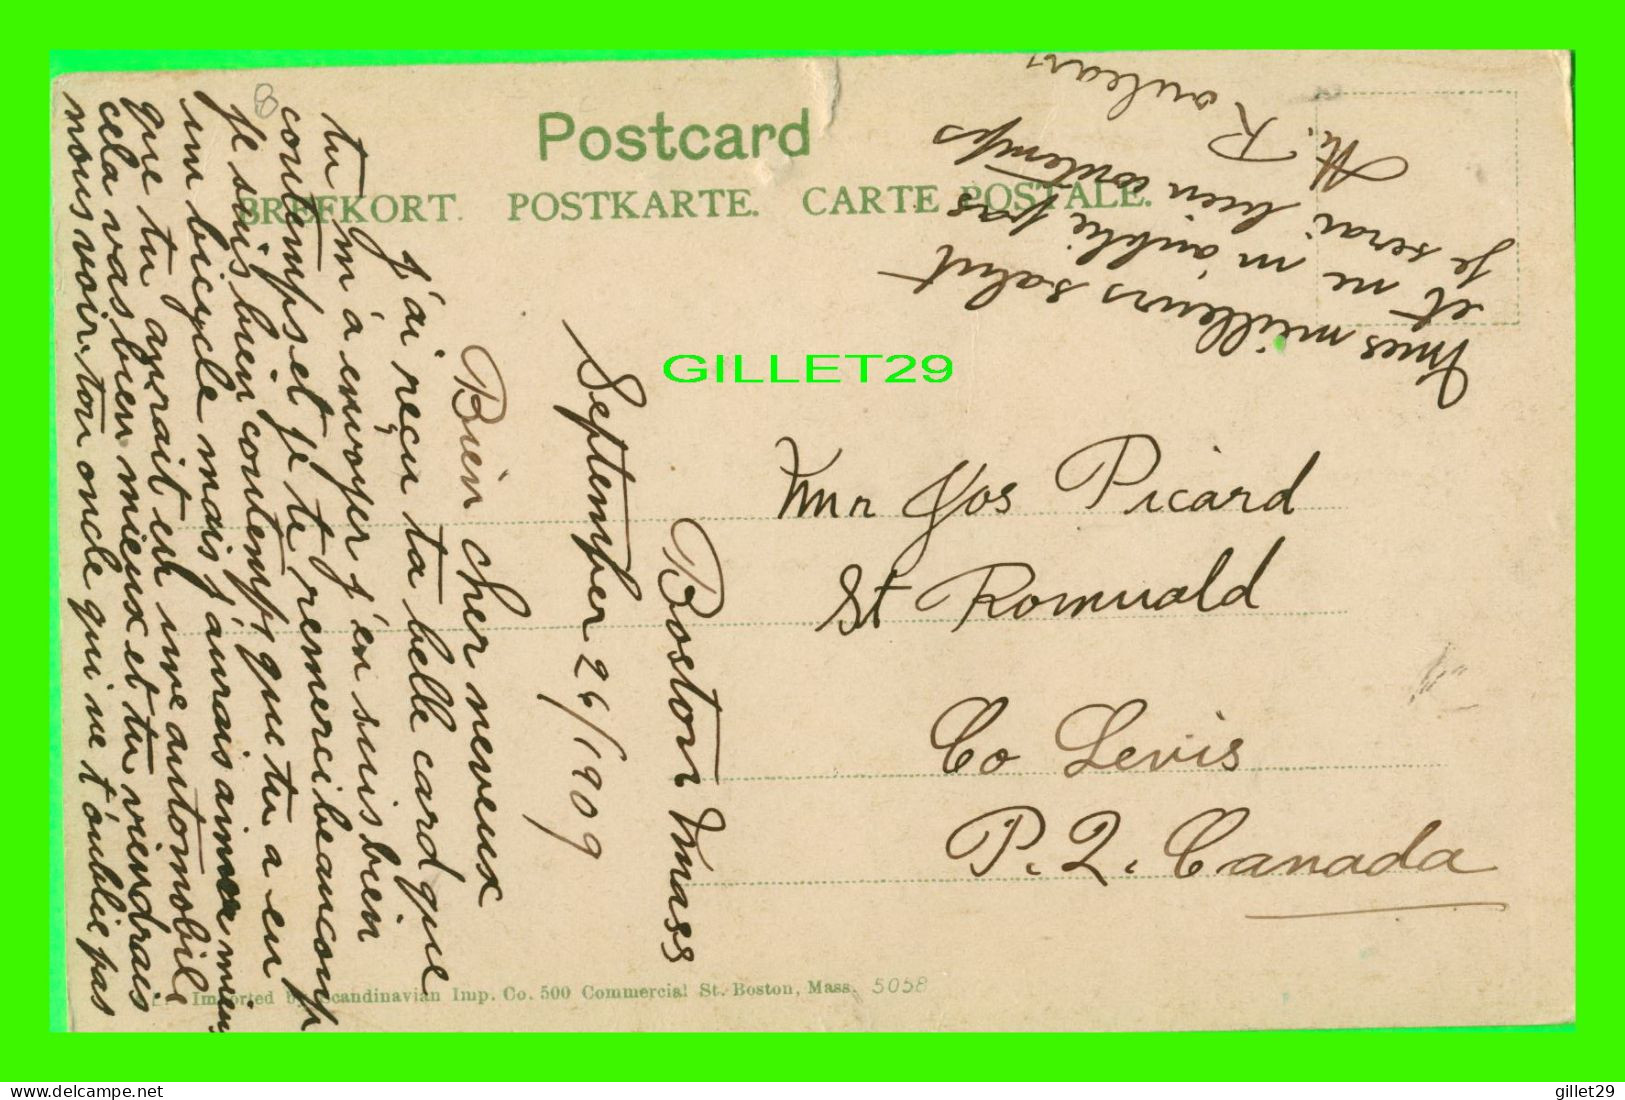 Postcard
BREFKORT. POSTKARTE. CARTE POSTALE.
Boston Mass
September 26/1909
Bien cher neveux
j'ai reçu ta belle card que
tu m'a envoyer j'en suis bien
contemps et je te remerci beaucoup
je suis bien contemps que tu a eu
un bicycle mais j'aurais aimer mieu
que tu aurait eu une automobile
cela vas bien mieux et tu viendrais
nous voir. ton oncle qui ne t'oublie pas
mes meilleurs salut
et ne m'oublie pas
je serai bien contemps
M. Rouleau
Mr Jos Picard
St Romuald
Co Levis
P. Q. Canada
GILLET29
Imported by Scandinavian Imp. Co. 500 Commercial St. Boston, Mass. 5058
8
gillet29